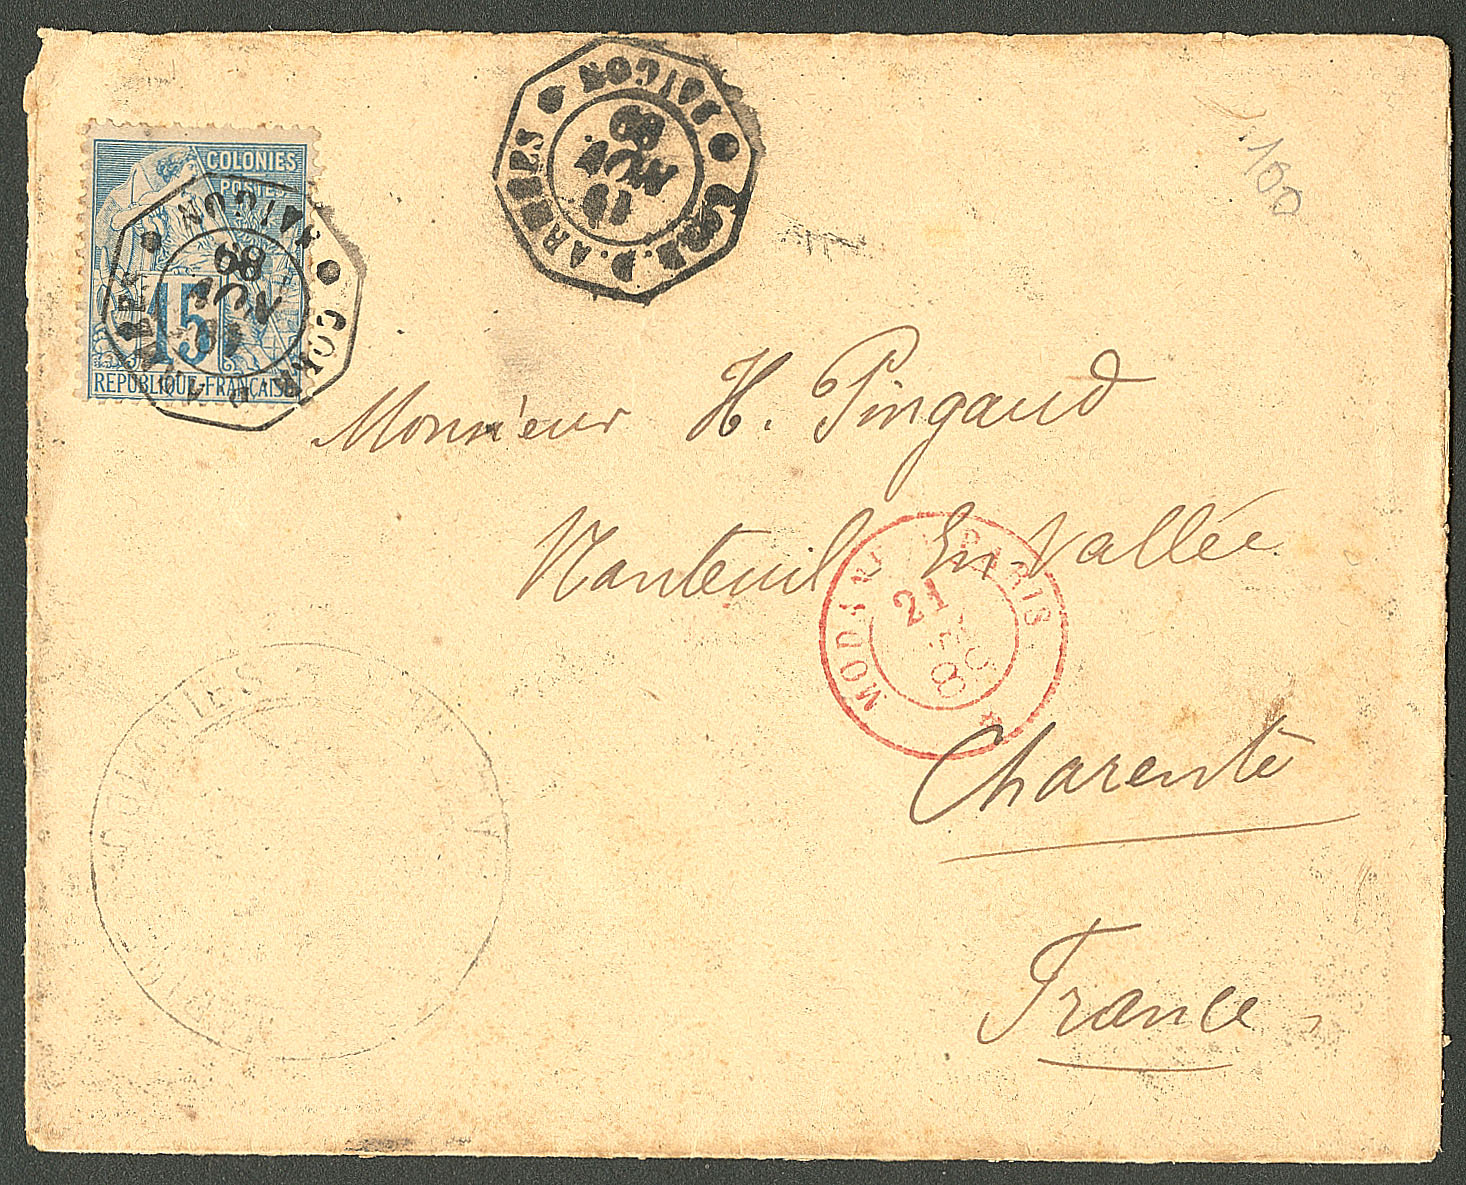 COLONIES
POSTES
15
REPUBLIQUE FRANÇAISE
CORR. D. ARMÉES
SAIGON
89
CORR. D. ARMÉES
SAIGON
NOV
89
1100
Monsieur H. Pingaud
Nanteuil En-Vallée
Charente
France
MODANE A PARIS
21
89
COLONIES